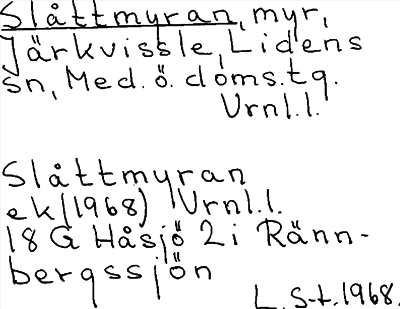 Slåttmyran, myr,
Järkvissle, Lidens
sn, Med. ö. doms.tg.
Vrnl.l.
Slåttmyran
ek(1968) Vrnl.l.
18 G Håsjö 2 i Ränn-
bergssjön
L. S-t. 1968.